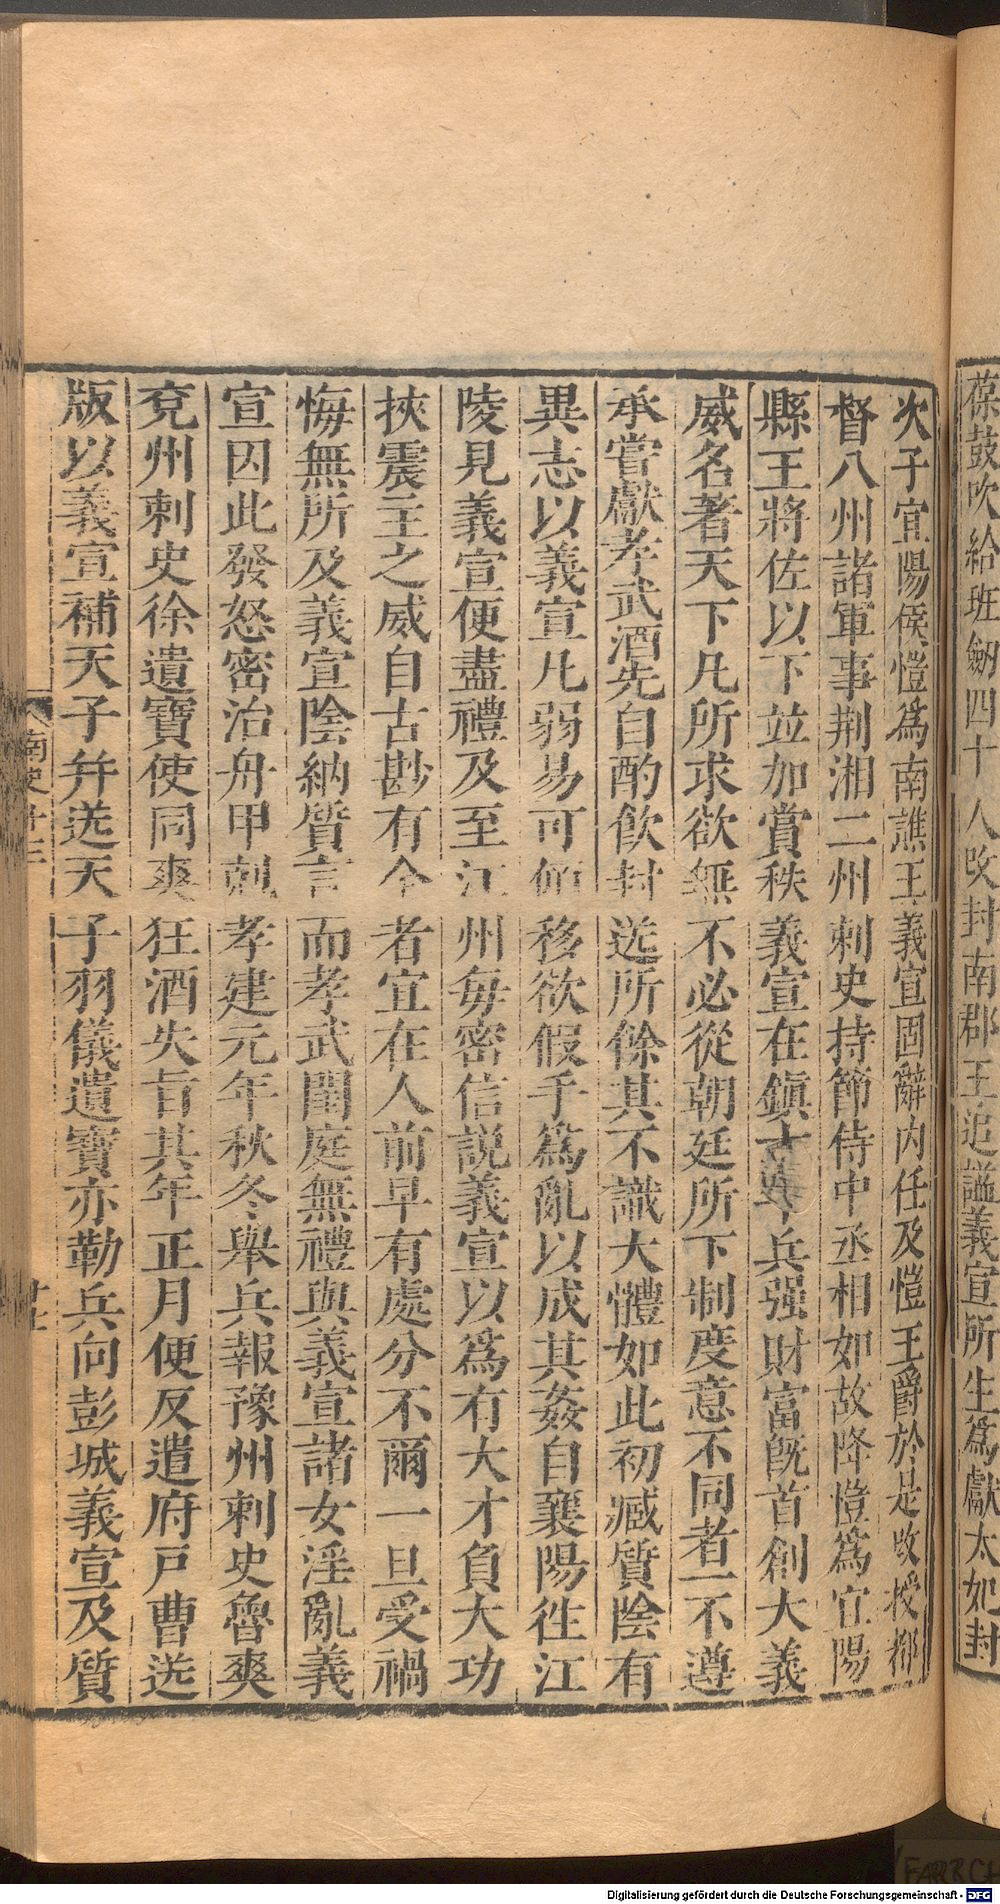 葆鼓吹給班劒四十人改封南郡王追謚義宣所生爲獻太妃封
次子宜陽侯愷爲南譙王義宣固辭内任及愷王爵於是改授都
督八州諸軍事荆湘二州刺史持節侍中丞相如故降愷爲宜陽
縣王將佐以下並加賞秩義宣在鎮十年兵强財富旣首創大義
威名著天下凡所求欲無不必從朝廷所下制度意不同者一不遵
承嘗獻孝武酒先自酌飲封送所餘其不識大體如此初臧質陰有
異志以義宣凡弱易可傾移欲假手爲亂以成其姦自襄陽徃江
陵見義宣便盡禮及至江州毎密信説義宣以爲有大才負大功
挾震主之威自古尠有全者宜在人前早有處分不爾一旦受禍
悔無所及義宣陰納質言而孝武閨庭無禮與義宣諸女淫亂義
宣因此發怒密治舟甲剋孝建元年秋冬舉兵報豫州刺史魯爽
兗州刺史徐遺寶使同爽狂酒失旨其年正月便反遣府戸曹送
版以義宣補天子并送天子羽儀遺寶亦勒兵向彭城義宣及質
南史十三
十七
Digitalisierung gefördert durch die Deutsche Forschungsgemeinschaft - DFG